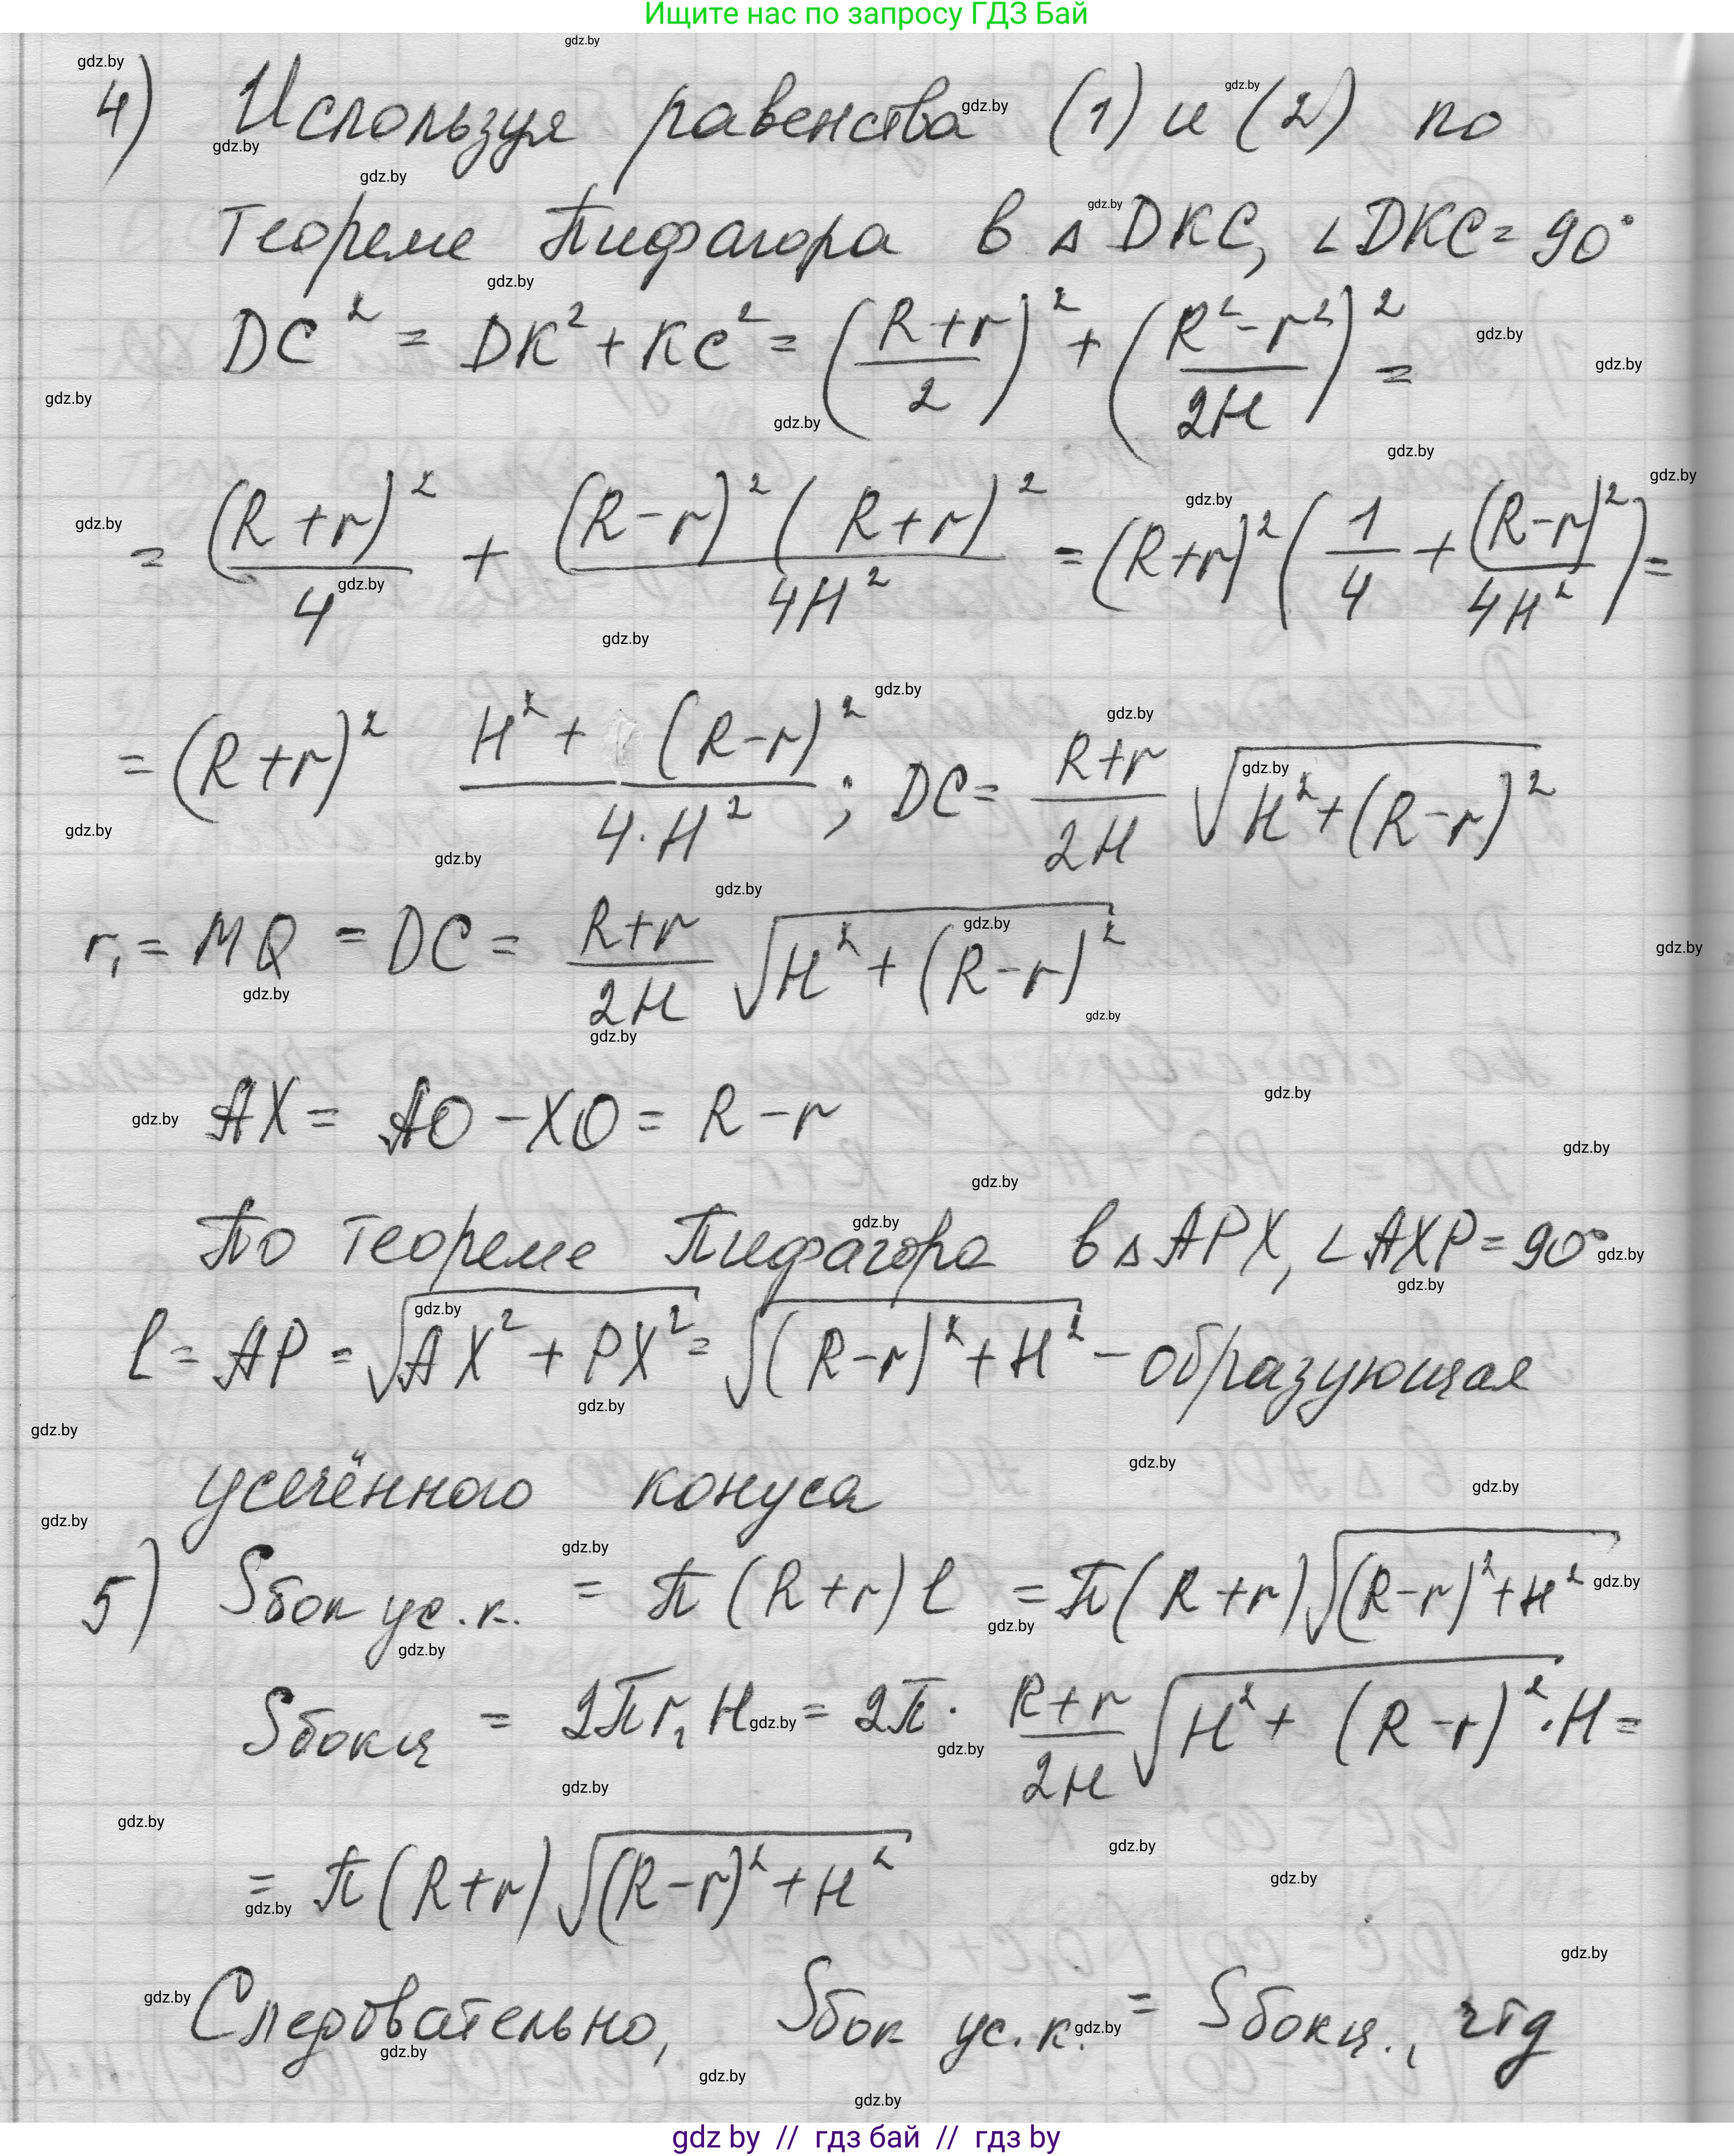 Ищите нас по запросу ГДЗ Бай
4) Используя равенства (1) и (2) по
теореме Пифагора в △DKC, ∠DKC = 90°
DC² = DK² + KC² = ((R+r)/2)² + ((R²-r²)/2H)² =
= (R+r)²/4 + (R-r)²(R+r)²/4H² = (R+r)²(1/4 + (R-r)²/4H²) =
= (R+r)² (H² + (R-r)²)/(4·H²); DC = (R+r)/2H √(H²+(R-r)²)
r₁ = MQ = DC = (R+r)/2H √(H²+(R-r)²)
AX = AO - XO = R - r
По теореме Пифагора в △APX, ∠AXP = 90°
l = AP = √(AX² + PX²) = √((R-r)² + H²) - образующая
усечённого конуса
5) Sбок ус.к. = π(R+r)l = π(R+r)√((R-r)²+H²)
Sбокц = 2πr₁H = 2π · (R+r)/2H √(H² + (R-r)²) · H =
= π(R+r)√((R-r)² + H²)
Следовательно, Sбок ус.к. = Sбокц., чтд
gdz by // гдз бай // гдз by